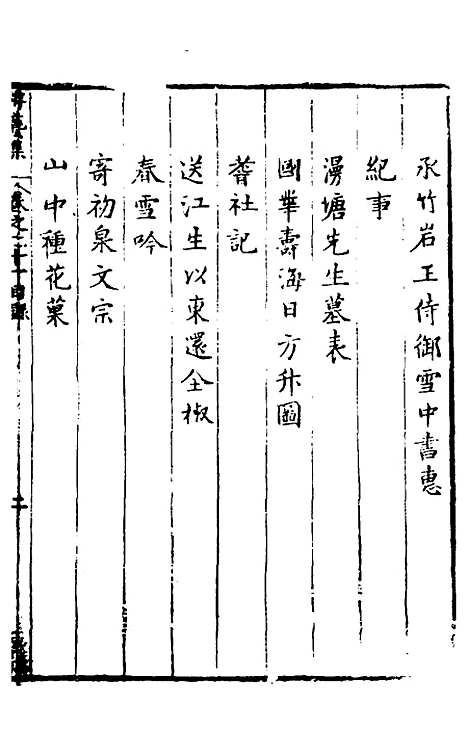 承竹岩王侍御雪中書惠
紀事
漫塘先生墓表
國華壽海日方升圖
耆社記
送江生以東還全椒
春雪吟
寄初泉文宗
山中種花菓
集 卷之二十一目錄 二